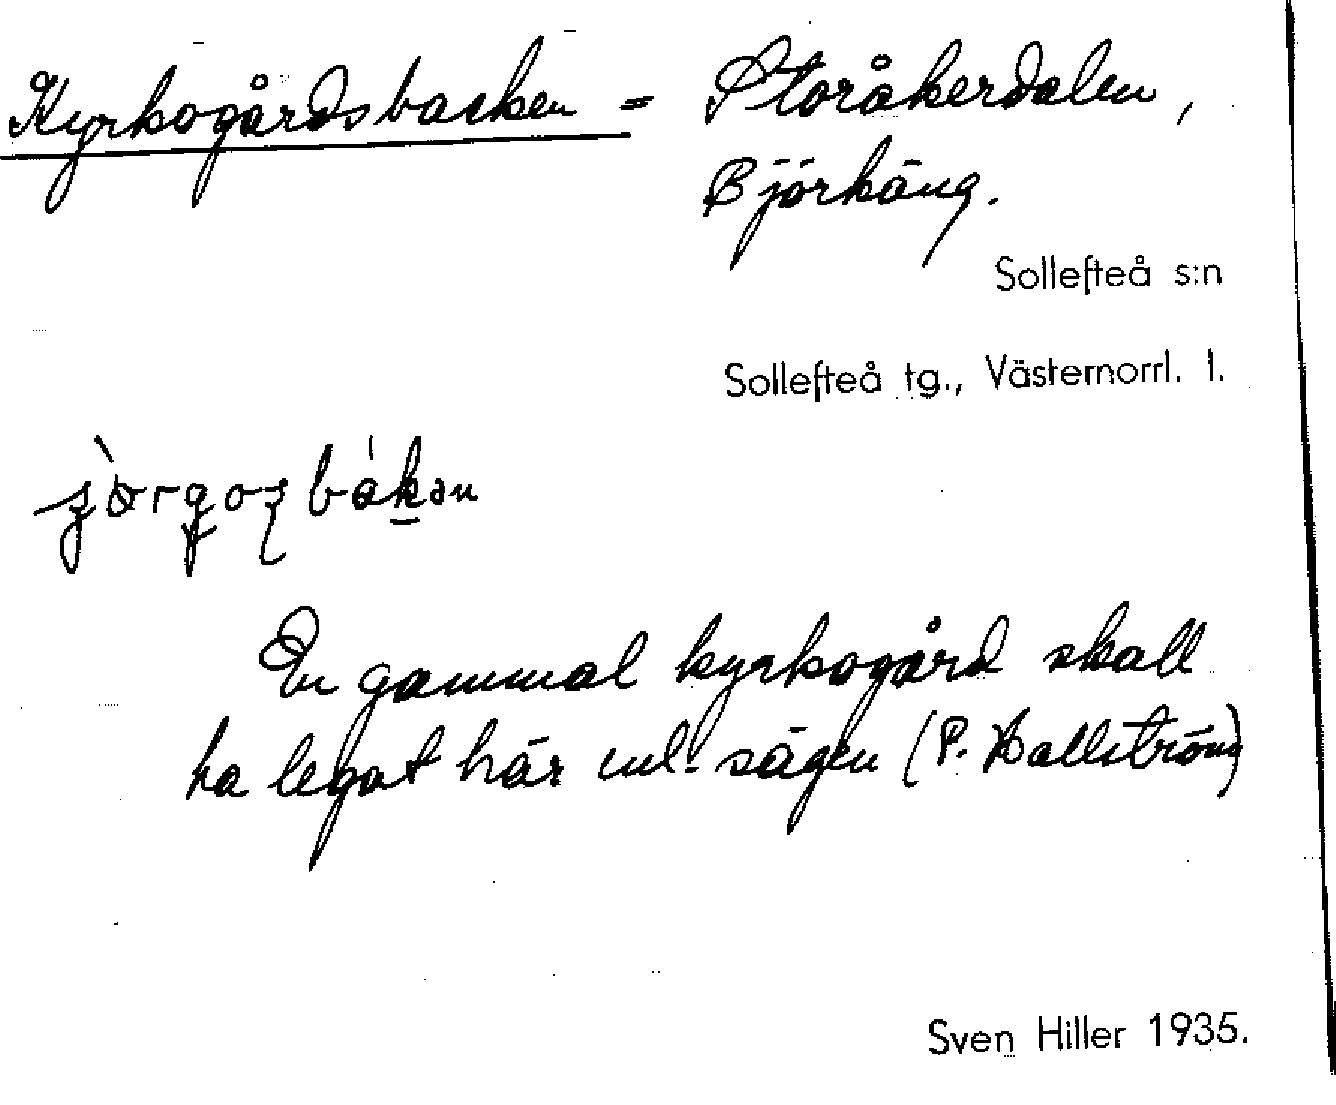 Kyrkogårdsbacken = Storåkerdalen,
Björkäng.
Sollefteå s:n
Sollefteå tg., Västernorrl. l.
En gammal kyrkogård skall
ha legat här enl. sägen (P. Hallström)
Sven Hiller 1935.